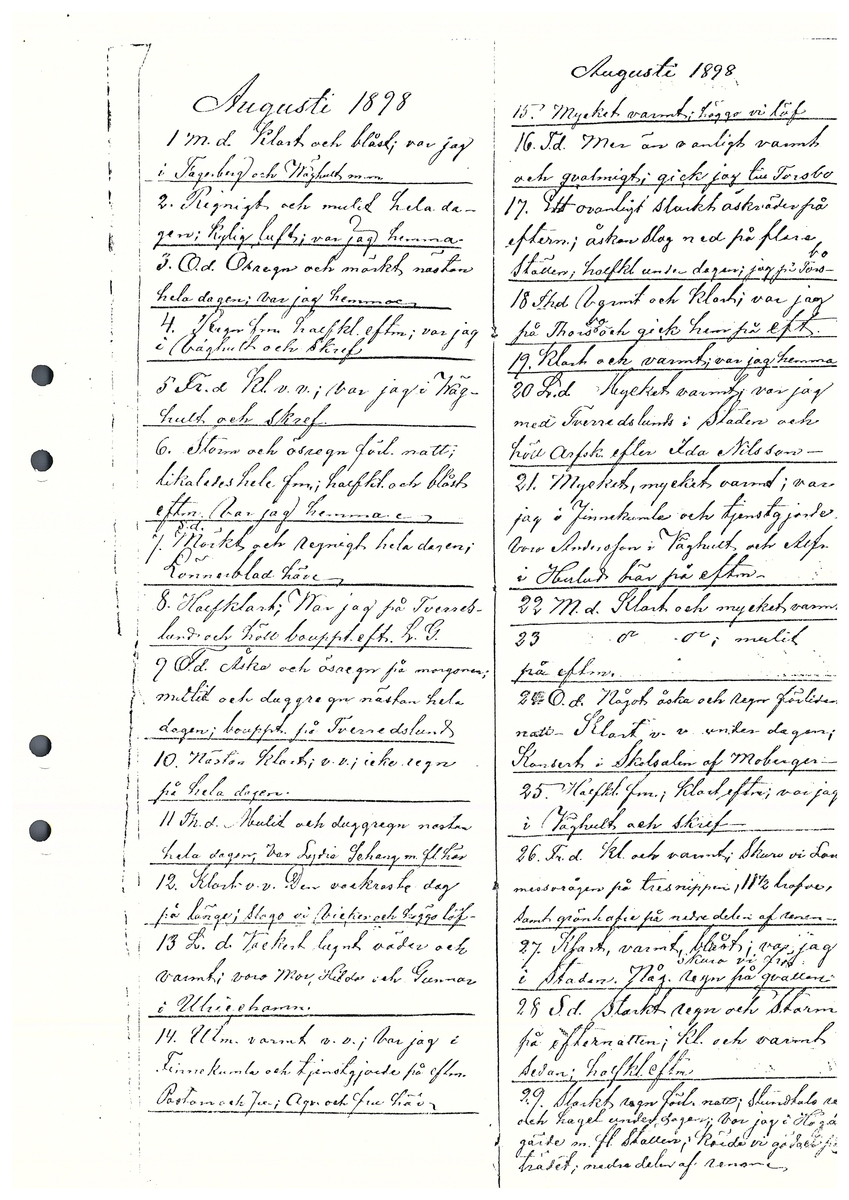 Augusti 1898
1 M.d. Klart och blåst; var jag
i Fagerberg och Wäghult m.m
2. Regnigt och mulit hela da-
gen; kylig luft; var jag hemma.
3. O.d. Ösregn och mörkt nästan
hela dagen; var jag hemma
4. Regn fm halfkl. eftm; var jag
i Väghult och skref
5 Fr.d kl. v.v.; var jag i Wäg-
hult och skref.
6. Storm och ösregn förl. natt;
likaledes hele fm; halfkl. och blåst
eftm. Var jag hemma
S.d.
7. Mörkt och regnigt hela dagen;
Lönnerblad här
8. Halfklart; War jag på Tverreds-
lund och höll bouppt. eftr. L. G.
9 T.d. Åska och ösregn på morgonen;
mulit och duggregn nästan hela
dagen; bouppt. på Tverredslund
10. Nästan klart; v.v.; icke regn
på hela dagen.
11 Th.d. Mulit och duggregn nästan
hela dagen; Var Lydia m. fl. här
12. Klart v.v. Den vackraste dag
på länge; slogo vi vicker och höggo löf-
13 L. d. Vackert lugnt väder och
varmt; voro Mor, Hilda och Gunnar
i Ulricehamn.
14. Utm. varmt v.v.; var jag i
Finnekumla och tjenstgjorde på eftm.
Pastorn och fru; Agr. och fru här
Augusti 1898
15. Mycket varmt; höggo vi löf
16. T.d. Mer än vanligt varmt
och qvalmigt; gick jag till Torsbo
17. Ett ovanligt starkt åskväder på
efterm.; åskan slog ned på flera
ställen; halfkl under dagen; jag på Tors-
bo
18 Th.d Varmt och klart; var jag
på Thorsbo och gick hem på eft.
19. Klart och varmt; var jag hemma
20 L.d Mycket varmt; var jag
med Tverredslunds i Staden och
höll Arfsk. efter Ida Nilsson-
21. Mycket, mycket varmt; var
jag i Finnekumla och tjenstgjorde.
Voro Andersson i Väghult och
i här på eftm-
22 M.d. Klart och mycket varm
23 ; mulit
på eftm.
24 O.d. Något åska och regn förliden
natt- Klart v. v. under dagen;
Konsert i Skolsalen af Moberger-
25. Halfkl. fm.; klart eftm; var jag
i Väghult och skref-
26. Fr.d. kl. och varmt; skuro vi Lan
messorågen på tresnippen, 11 1/2 trafve,
samt grönhafre på nedre delen af renen-
27. Klart, varmt, blåst; var jag
skuro vi
i Staden. Någ. regn på qvällen-
28 S.d. Starkt regn och Storm
på efternatten; kl. och varmt
sedan; halfkl. eftm
29. Starkt regn förl. natt; Stundtals re
och hagel under dagen; var jag i Högå
gärde m. fl. ställen; körde vi gödsel på
trädet; nedre delen af renarne